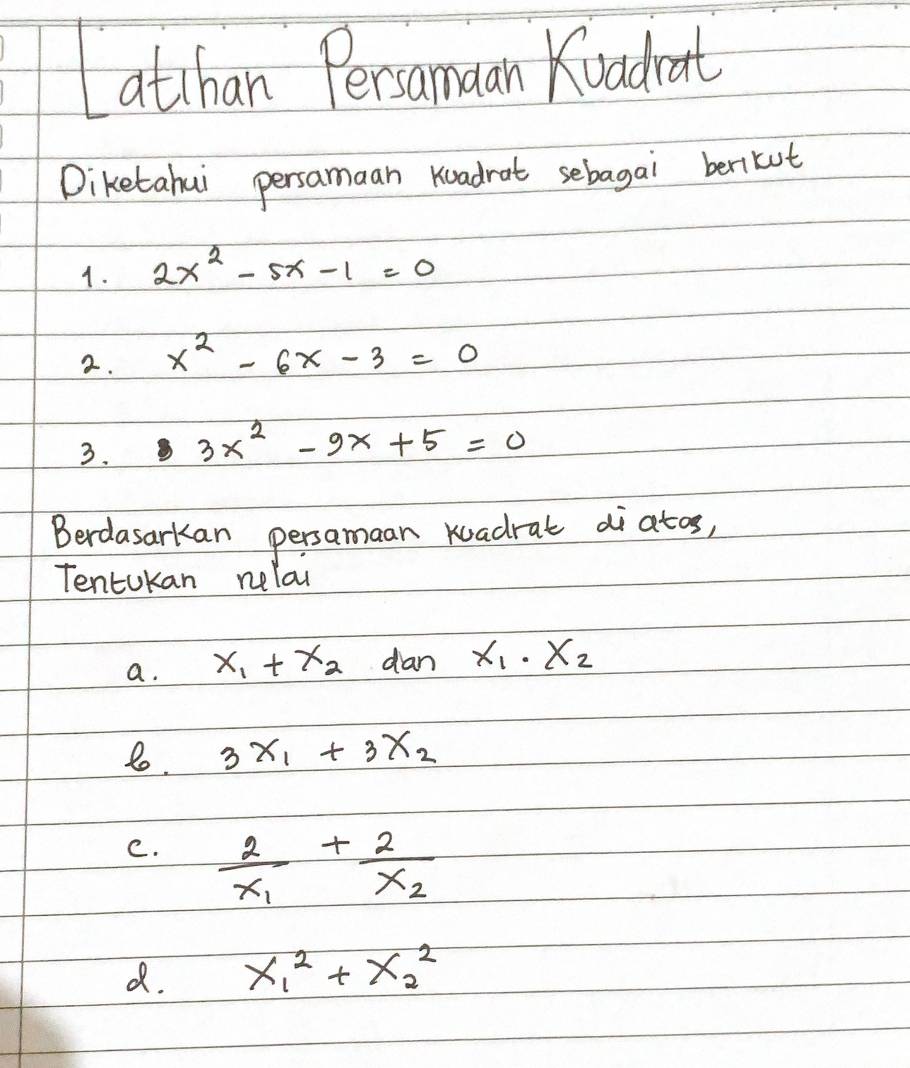 Latihan Persamaan Kuadrat
Diketahui persamaan kuadrat sebagai berikut
1. 2x² - 5x - 1 = 0
2. x² - 6x - 3 = 0
3. 3x² - 9x + 5 = 0
Berdasarkan persamaan kuadrat di atas,
Tentukan nilai
a. x₁ + x₂ dan x₁ . x₂
b. 3x₁ + 3x₂
c. 2/x₁ + 2/x₂
d. x₁² + x₂²